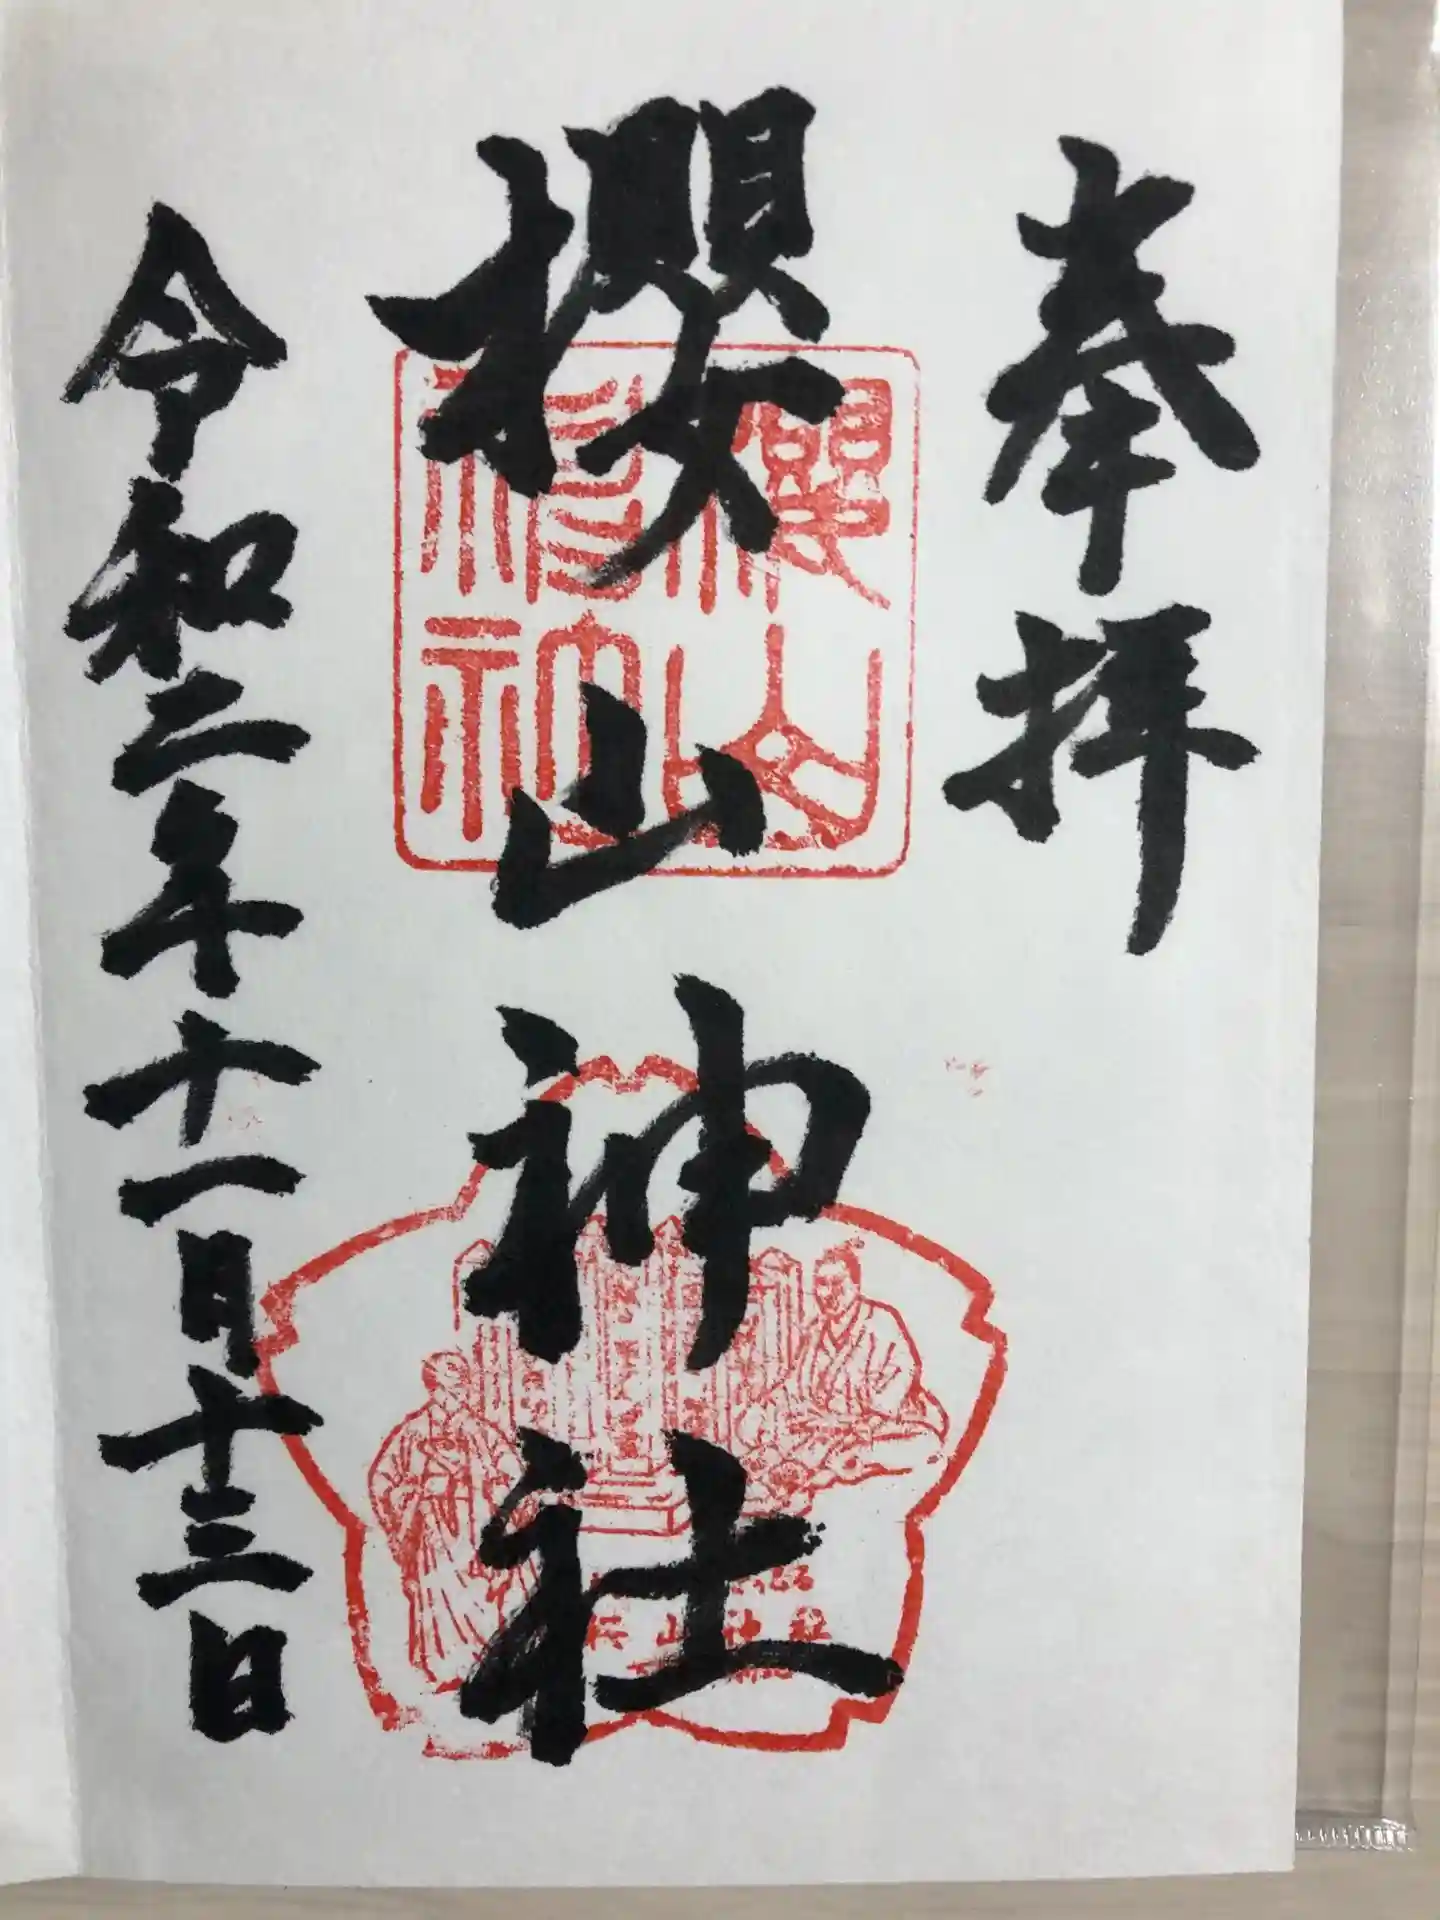 奉拝
櫻山神社
令和二年十一月十三日
櫻山
神社